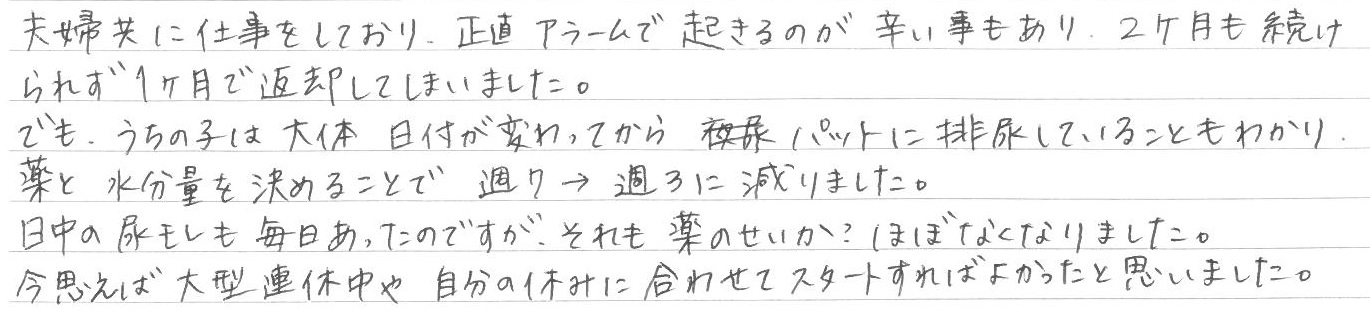 夫婦共に仕事をしており、正直アラームで起きるのが辛い事もあり、2ケ月も続け
られず1ヶ月で返却してしまいました。
でも、うちの子は大体 日付が変わってから 夜尿パットに排尿していることもわかり、
薬と水分量を決めることで 週7→週3に減りました。
日中の尿モレも毎日あったのですが、それも薬のせいか?ほぼなくなりました。
今思えば大型連休中や 自分の休みに合わせてスタートすればよかったと思いました。